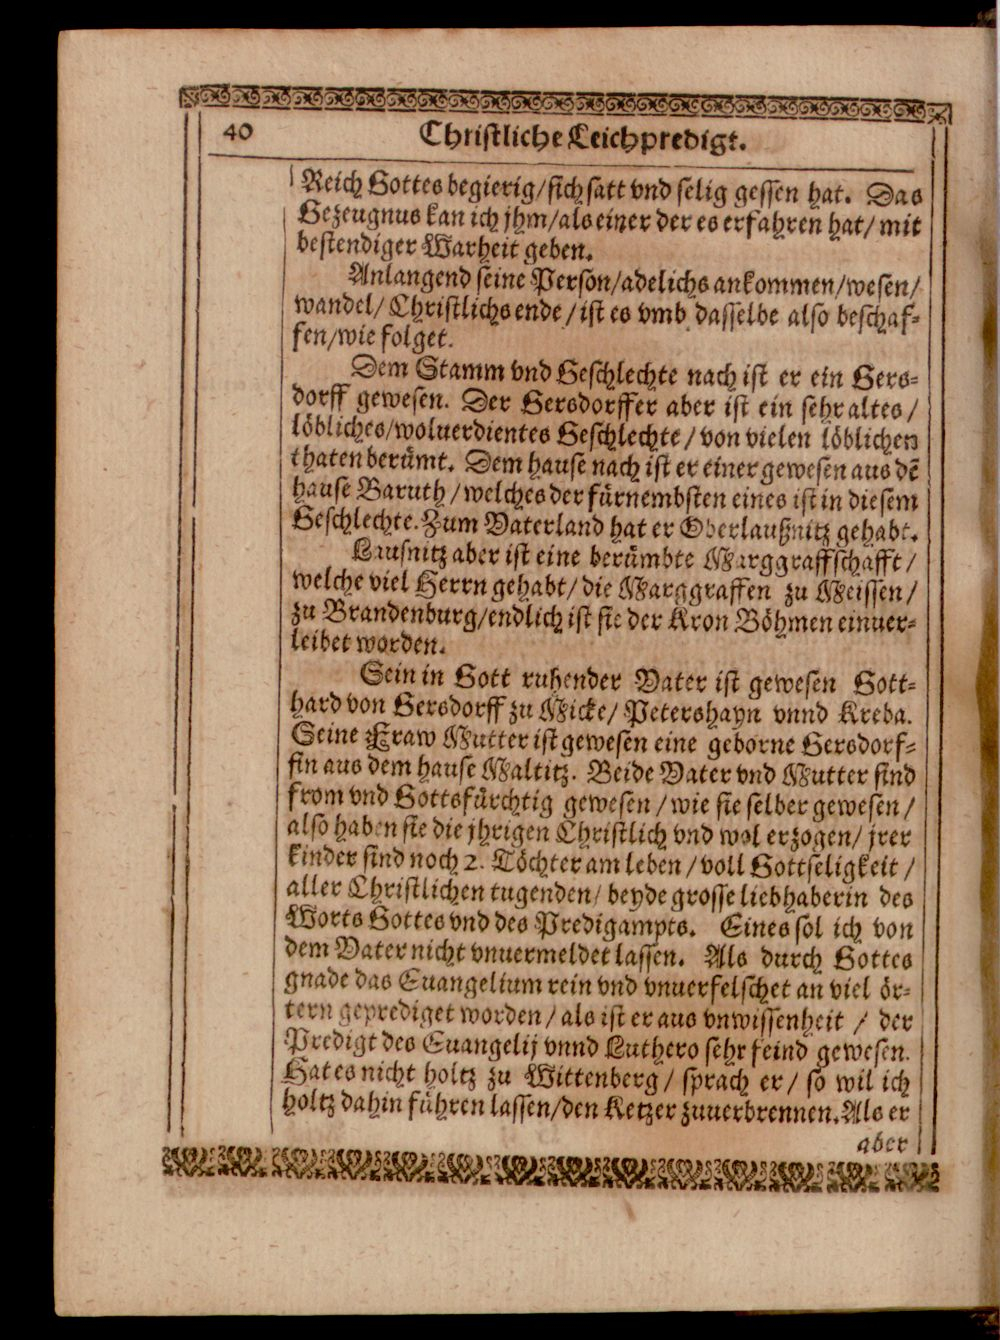 40 Christliche Leichpredigt.
Reich Gottes begierig/ sich satt vnd selig gessen hat. Das
Gezeugnus kan ich jhm/ als einer der es erfahren hat/ mit
bestendiger Warheit geben.
Anlangend seine Person/ adelichs ankommen/ wesen/
wandel/ Christlichs ende/ ist es vmb dasselbe also beschaf-
fen/ wie folget.
Dem Stamm vnd Geschlechte nach ist er ein Gers-
dorff gewesen. Der Gersdorffer aber ist ein sehr altes/
löbliches/ woluerdientes Geschlechte/ von vielen löblichen
thaten berümt. Dem hause nach ist er einer gewesen aus dē
hause Baruth/ welches der fürnembsten eines ist in diesem
Geschlechte. Zum Vaterland hat er Oberlaußnitz gehabt.
Lausnitz aber ist eine berümbte Marggraffschafft/
welche viel Herrn gehabt/ die Marggraffen zu Meissen/
zu Brandenburg/ endlich ist sie der Kron Böhmen einuer-
leibet worden.
Sein in Gott ruhender Vater ist gewesen Gott-
hard von Gersdorff zu Micke/ Petershayn vnnd Kreba.
Seine Fraw Mutter ist gewesen eine geborne Gersdorf-
fin aus dem hause Maltitz. Beide Vater vnd Mutter sind
from vnd Gottsfürchtig gewesen/ wie sie selber gewesen/
also haben sie die jhrigen Christlich vnd wol erzogen/ jrer
kinder sind noch 2. Töchter am leben/ voll Gottseligkeit/
aller Christlichen tugenden/ beyde grosse liebhaberin des
Worts Gottes vnd des Predigampts. Eines sol ich von
dem Vater nicht vnuermeldet lassen. Als durch Gottes
gnade das Euangelium rein vnd vnuerfelschet an viel ör-
tern geprediget worden/ als ist er aus vnwissenheit/ der
Predigt des Euangelij vnnd Luthero sehr feind gewesen.
Hat es nicht holtz zu Wittenberg/ sprach er/ so wil ich
holtz dahin führen lassen/ den Ketzer zuuerbrennen. Als er
aber